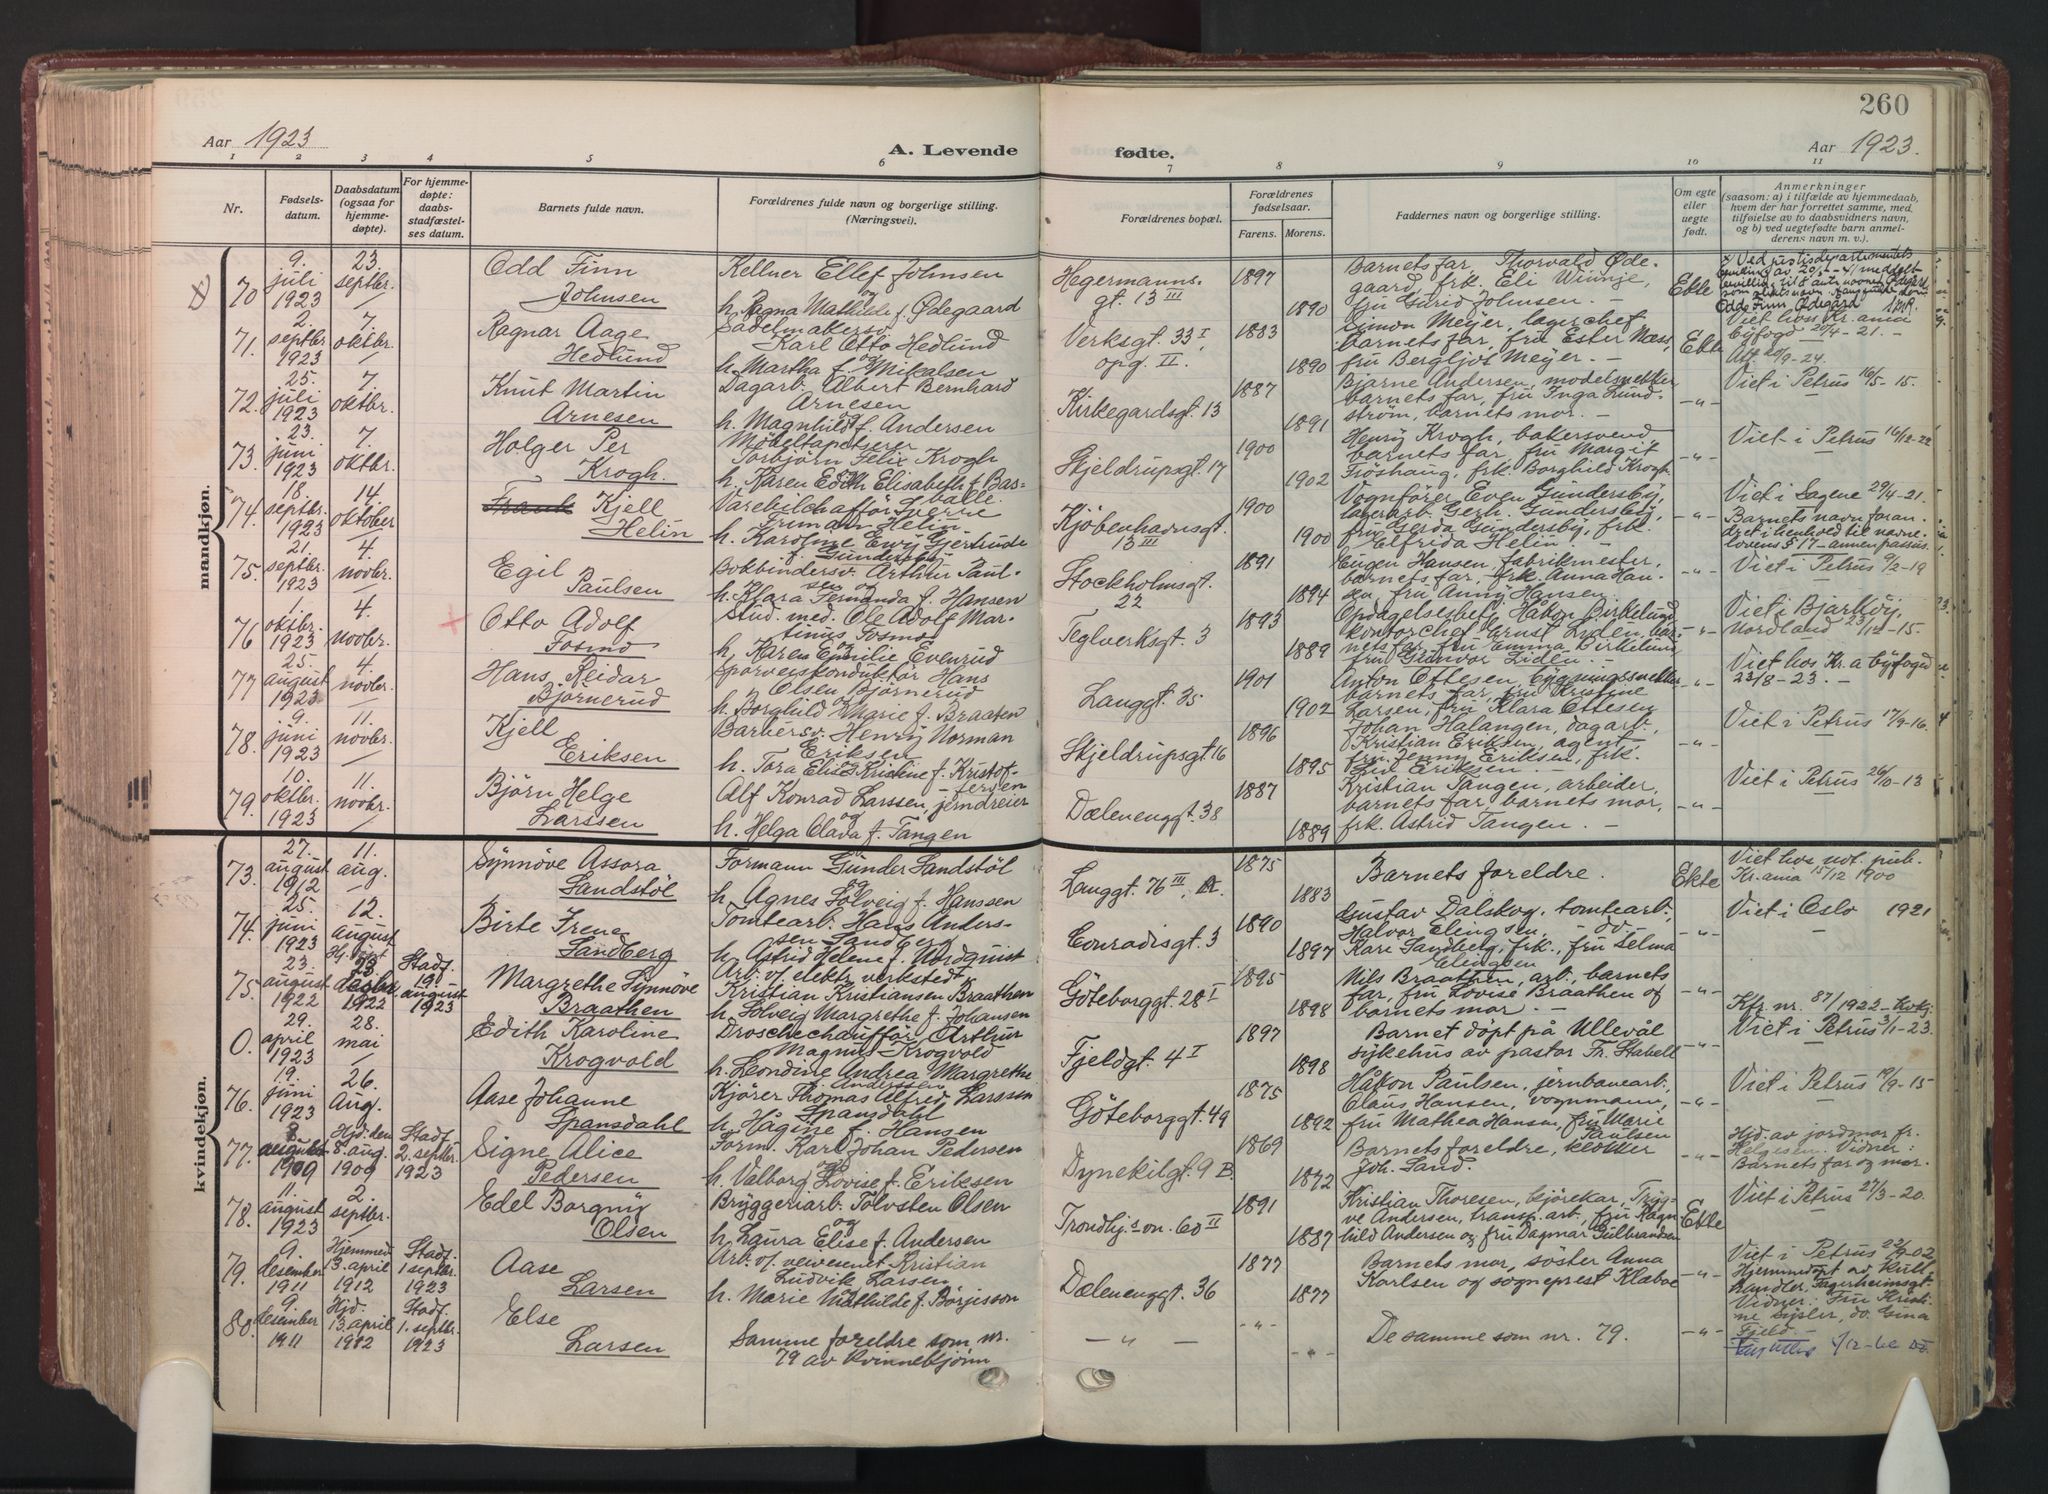 260
Aar 1923
A. Levende
fødte.
Aar 1923.
1 2 3 4 5 6 7 8 9 10 11
Nr.
Fødsels-
datum.
Daabsdatum
(ogsaa for
hjemme-
døpte).
For hjemme-
døpte:
daabs-
stadfæstel-
ses datum.
Barnets fulde navn.
Forældrenes fulde navn og borgerlige stilling.
(Næringsvei).
Forældrenes bopæl.
Forældrenes
fødselsaar.
Farens.
Morens.
Faddernes navn og borgerlige stilling.
Om egte
eller
uegte
født.
Anmerkninger
(saasom: a) i tilfælde av hjemmedaab,
hvem der har forrettet samme, med
tilføielse av to daabsvidners navn,
og b) ved uegtefødte barn anmel-
derens navn m. v.).
mandkjøn.
70
9.
juli
1923
23.
septbr.
Odd Finn
Johnsen
Kellner Ellef Johnsen
og
h. Ragna Mathilde f. Ødegaard
Hegermanns-
gt. 13 III
1897
1890
Barnets far, Thorvald Øde-
gaard, frk. Eli Winnje,
fru Gurid Johnsen. -
Ekte
71.
2.
septbr
1923
7
oktbr.
Ragnar Aage
Hedlund
Sadelmakersv.
Karl Otto Hedlund
og
h. Martha f. Mikalsen
Verksgt. 33 I,
opg. II.
1883
1890
Simon Meyer, lagerchef
barnets far, fru Ester Næss,
fru Bergljot Meyer. -
Ekte
Viet hoss Kr.ania
byfogd 20/4-21. -
72.
25.
juli
1923
7
oktbr.
Knut Martin
Arnesen
Dagarb. Albert Bernhard
Arnesen
og
h. Magnhild f. Andersen
Kirkegardsgt. 13
1887
1891
Bjarne Andersen, modelsnekker
barnets far, fru Inga Lund-
strøm, barnets mor. -
-"-
Viet i Petrus 16/5-15.
73.
23.
juni
1923
7.
oktbr.
Holger Per
Krogh.
Møbeltapetserer
Torbjørn Felix Krogh
og
h. Karen Edith Elisabeth f. Bas-
balle.
Skjeldrupsgt. 17
1900
1902
Henry Krogh, bakersvend
barnets far, fru Margit
Frøshaug, frk. Borghild Krogh.
-"-
Viet i Petrus 16/12-22
74.
18.
septbr.
1923
14.
oktober
Frank Kjell
Helin
Varebilchaffør Sverre
Trumann Helin
h. Karoline Ewy Gjertrude
f. Gundersby
Kjøbenhavnsgt.
13 III
1900
1900
Vognfører Even Gundersby,
lagerarb. Gerh. Gundersby,
fru Gerda Gundersby, frk.
Elfrida Helin. -
-"-
Viet i Sagene 29/4-21.
Barnets navn foran-
dret i henhold til navne-
lovens § 17 - annen passus.
75.
21.
septbr.
1923
4.
novbr.
Egil
Paulsen
Bokbindersv. Arthur Paul-
sen og
h. Klara Fernanda f. Hansen
Stockholmsgt.
22
1891
1894
Eugen Hansen, fabrikmester,
barnets far, frk. Anna Han-
sen, fru Anny Hansen.
-"-
Viet i Petrus 9/2-19
76
oktbr.
1923
4.
novbr.
Otto Adolf
Fosmo
Stud. med. Ole Adolf Mar-
tinus Fosmo
og
h. Karen Emilie Evenrud
Teglverksgt. 3
1893
1889
Opdagelsesbetj. Håkon Birkelund
kontorchef Ernst Lyden, bar-
nets far, fru Emma Birkelund
fru Gunvor Liden. -
-"-
Viet i Bjarköy,
Nordland 23/12-15.
77
25.
august
1923
4.
novbr.
Hans Reidar
Bjørnerud
Sporveiskonduktør Hans
Olsen Bjørnerud
og
h. Borghild Marie f. Braaten
Langgt. 35
1901
1902
Anton Ottesen, bygningssnekker
barnets far, fru Kristine
Larsen, fru Klara Ottesen
-"-
Viet hos Kr.a byfogd
23/8-23. -
78.
9.
juni
1923
11.
novbr.
Kjell
Eriksen
Barbersv. Henry Norman
Eriksen
og
h. Tora Elise Kristine f. Kristof-
fersen
Skjeldrupsgt. 16
1896
1895
Johan Halangen, dagarb.
Kristian Eriksen, agent,
fru Jenny Eriksen, frk.
Eriksen -
-"-
Viet i Petrus 17/9-16.
79.
10.
oktbr.
1923
11.
novbr.
Bjørn Helge
Larssen
Alf Konrad Larssen, jerndreier
og
h. Helga Olava f. Tangen
Dælenenggt. 38
1887
1889
Kristian Tangen, arbeider,
barnets far, barnets mor,
frk. Astrid Tangen. -
-"-
Viet i Petrus 26/10-13
kvindekjøn.
73.
27.
august
1912
11.
aug.
Synnöve Assora
Sandstöl
Formann Gunder Sandstöl
og
h. Agnes Solveig f. Hanssen
Langgt. 76 III,
1875
1883
Barnets foreldre.
Ekte
Viet hos not. pub.
Kr.ania 15/12 1900
74.
25.
juni
1923
12.
august
Birte Irene
Sandberg
Tomtearb. Hans Anders-
sen Sandberg
h. Astrid Helene f. Nordquist
Conradisgt. 3
1890
1897
Gustav Dalskog, tomtearb.,
Halvor Elingsen, -do-
Kari Sandberg, frk., fru Selma
Elingsen
-"-
Viet i Oslo 1921
75.
23.
august
1922
Hj. döpt
23
1922
Stadf.
19.
august
1923
Margrethe Synnöve
Braathen
Arb. v. elektr. verksted
Kristian Kristiansen Braathen
h. Solveig Margrethe f. Johansen
Göteborggt. 28 I
1895
1898
Nils Braathen, arb., barnets
far, fru Lovise Braathen og
barnets mor. -
-"-
0.
29.
april
1923
28.
mai
Edith Karoline
Krogvold
Droschechauffør Arthur
Magnus Krogvold
h. Leondine Andrea Margrethe
f. Anderssen
Fjeldgt. 4 I
1897
1898
Barnet döpt på Ullevål
sykehus av pastor Fr. Stabell
-"-
Kfr. nr. 87/1922 - kvkj.
Viet i Petrus 3/1-23.
76.
19.
juni
1923
26.
Aug.
Aase Johanne
Spansdahl
Kjörer Thomas Alfred Larssen
Spansdahl
h. Hagine f. Hansen
Göteborggt. 49
1875
1892
Håkon Paulsen, jernbanearb.
Claus Hansen, vognmann,
fru Mathea Hansen, fru Marie
Paulsen
-"-
Viet i Petrus 19/9-15-
77.
8
august
1909
Hjd. den
8. aug.
1909
Stadf.
2. septbr.
1923
Signe Alice
Pedersen
Form. Karl Johan Pedersen
og
h. Valborg Lovise f. Eriksen
Dynekilgt. 9 B.
1869
1872
Barnets foreldre, klokker
Joh. Sand.
-"-
Hjd. av jordmor fr.
Helgesen. Vidner:
Barnets far og mor.
78.
11.
august
1923
2.
septbr.
Edel Borgny
Olsen
Bryggeriarb. Tolvsten Olsen
og
h. Laura Elise f. Andersen
Trondhj.svn. 60 II
1891
1887
Kristian Thoresen, kjörekar, Tryg-
ve Andersen, transp. arb., fru Ragn-
hild Andersen og fru Dagmar Gulbrandsen
Ekte
Viet i Petrus 27/3-20.
79.
9.
desember
1911
Hjemmed.
13. april
1912
Stadf.
1 septbr.
1923
Aase
Larsen
Arb. v. veivesenet Kristian
Ludvik Larsen,
h. Marie Mathilde f. Börjesson
Dælenenggt. 36
1877
1877
Barnets mor, söster Anna
Karlsen og sogneprest Klaboe
-"-
Viet i Petrus 22/9-02
Hjemmedöpt av kull-
handler, Fagerheimsgt.
Vidner: Fru Kristi-
ne Sisler, do. Gina
Fjeld -
80.
9.
desember
1911
Hjd.
13. april
1912
Stadf.
1. septbr.
1923
Else
Larsen
Samme foreldre som nr.
79 av kvinnekjönn
-"-
-"-
De samme som nr. 79.
-"-